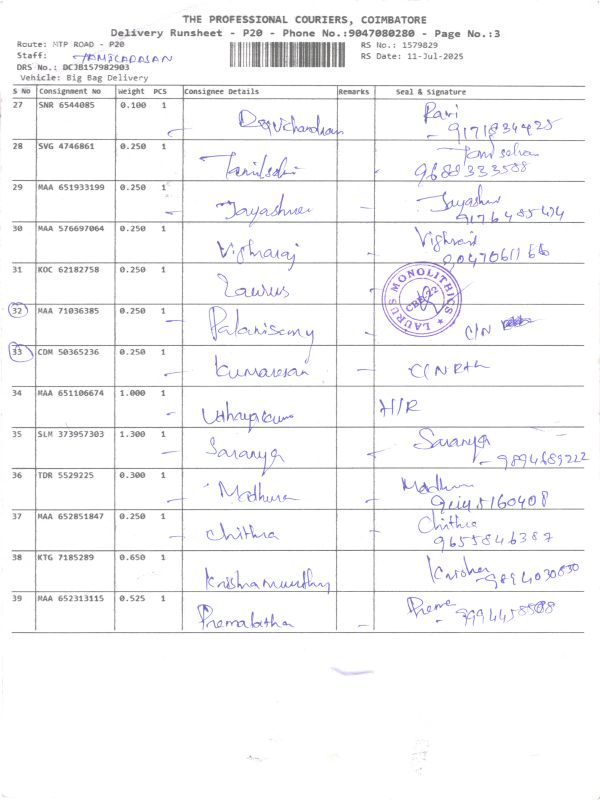 THE PROFESSIONAL COURIERS, COIMBATORE
Delivery Runsheet - P20 - Phone No.:9047080280 - Page No.:3
Route: MTP ROAD - P20
RS No.: 1579829
Staff:
RS Date: 11-Jul-2025
DRS No.: DCJB157982903
Vehicle: Big Bag Delivery
S No Consignment No Weight PCS Consignee Details Remarks Seal & Signature
27 SNR 6544085 0.100 1 Ravi
28 SVG 4746861 0.250 1 Tamilselvi
9688333588
29 MAA 651933199 0.250 1
30 MAA 576697064 0.250 1
31 KOC 62182758 0.250 1 Laurus
LAURUS MONOLITHICS
CBE-22
32 MAA 71036385 0.250 1 Palanisamy C/N
33 CDM 50365236 0.250 1 Kumaresan C/N
34 MAA 651106674 1.000 1 H/R
35 SLM 373957303 1.300 1 Saranya Saranya
- 9894689222
36 TDR 5529225 0.300 1 Madhuna
37 MAA 652851847 0.250 1 Chithra Chithra
9655846387
38 KTG 7185289 0.650 1 Krishnamurthy
- 9894030830
39 MAA 652313115 0.525 1 Premalatha Prema